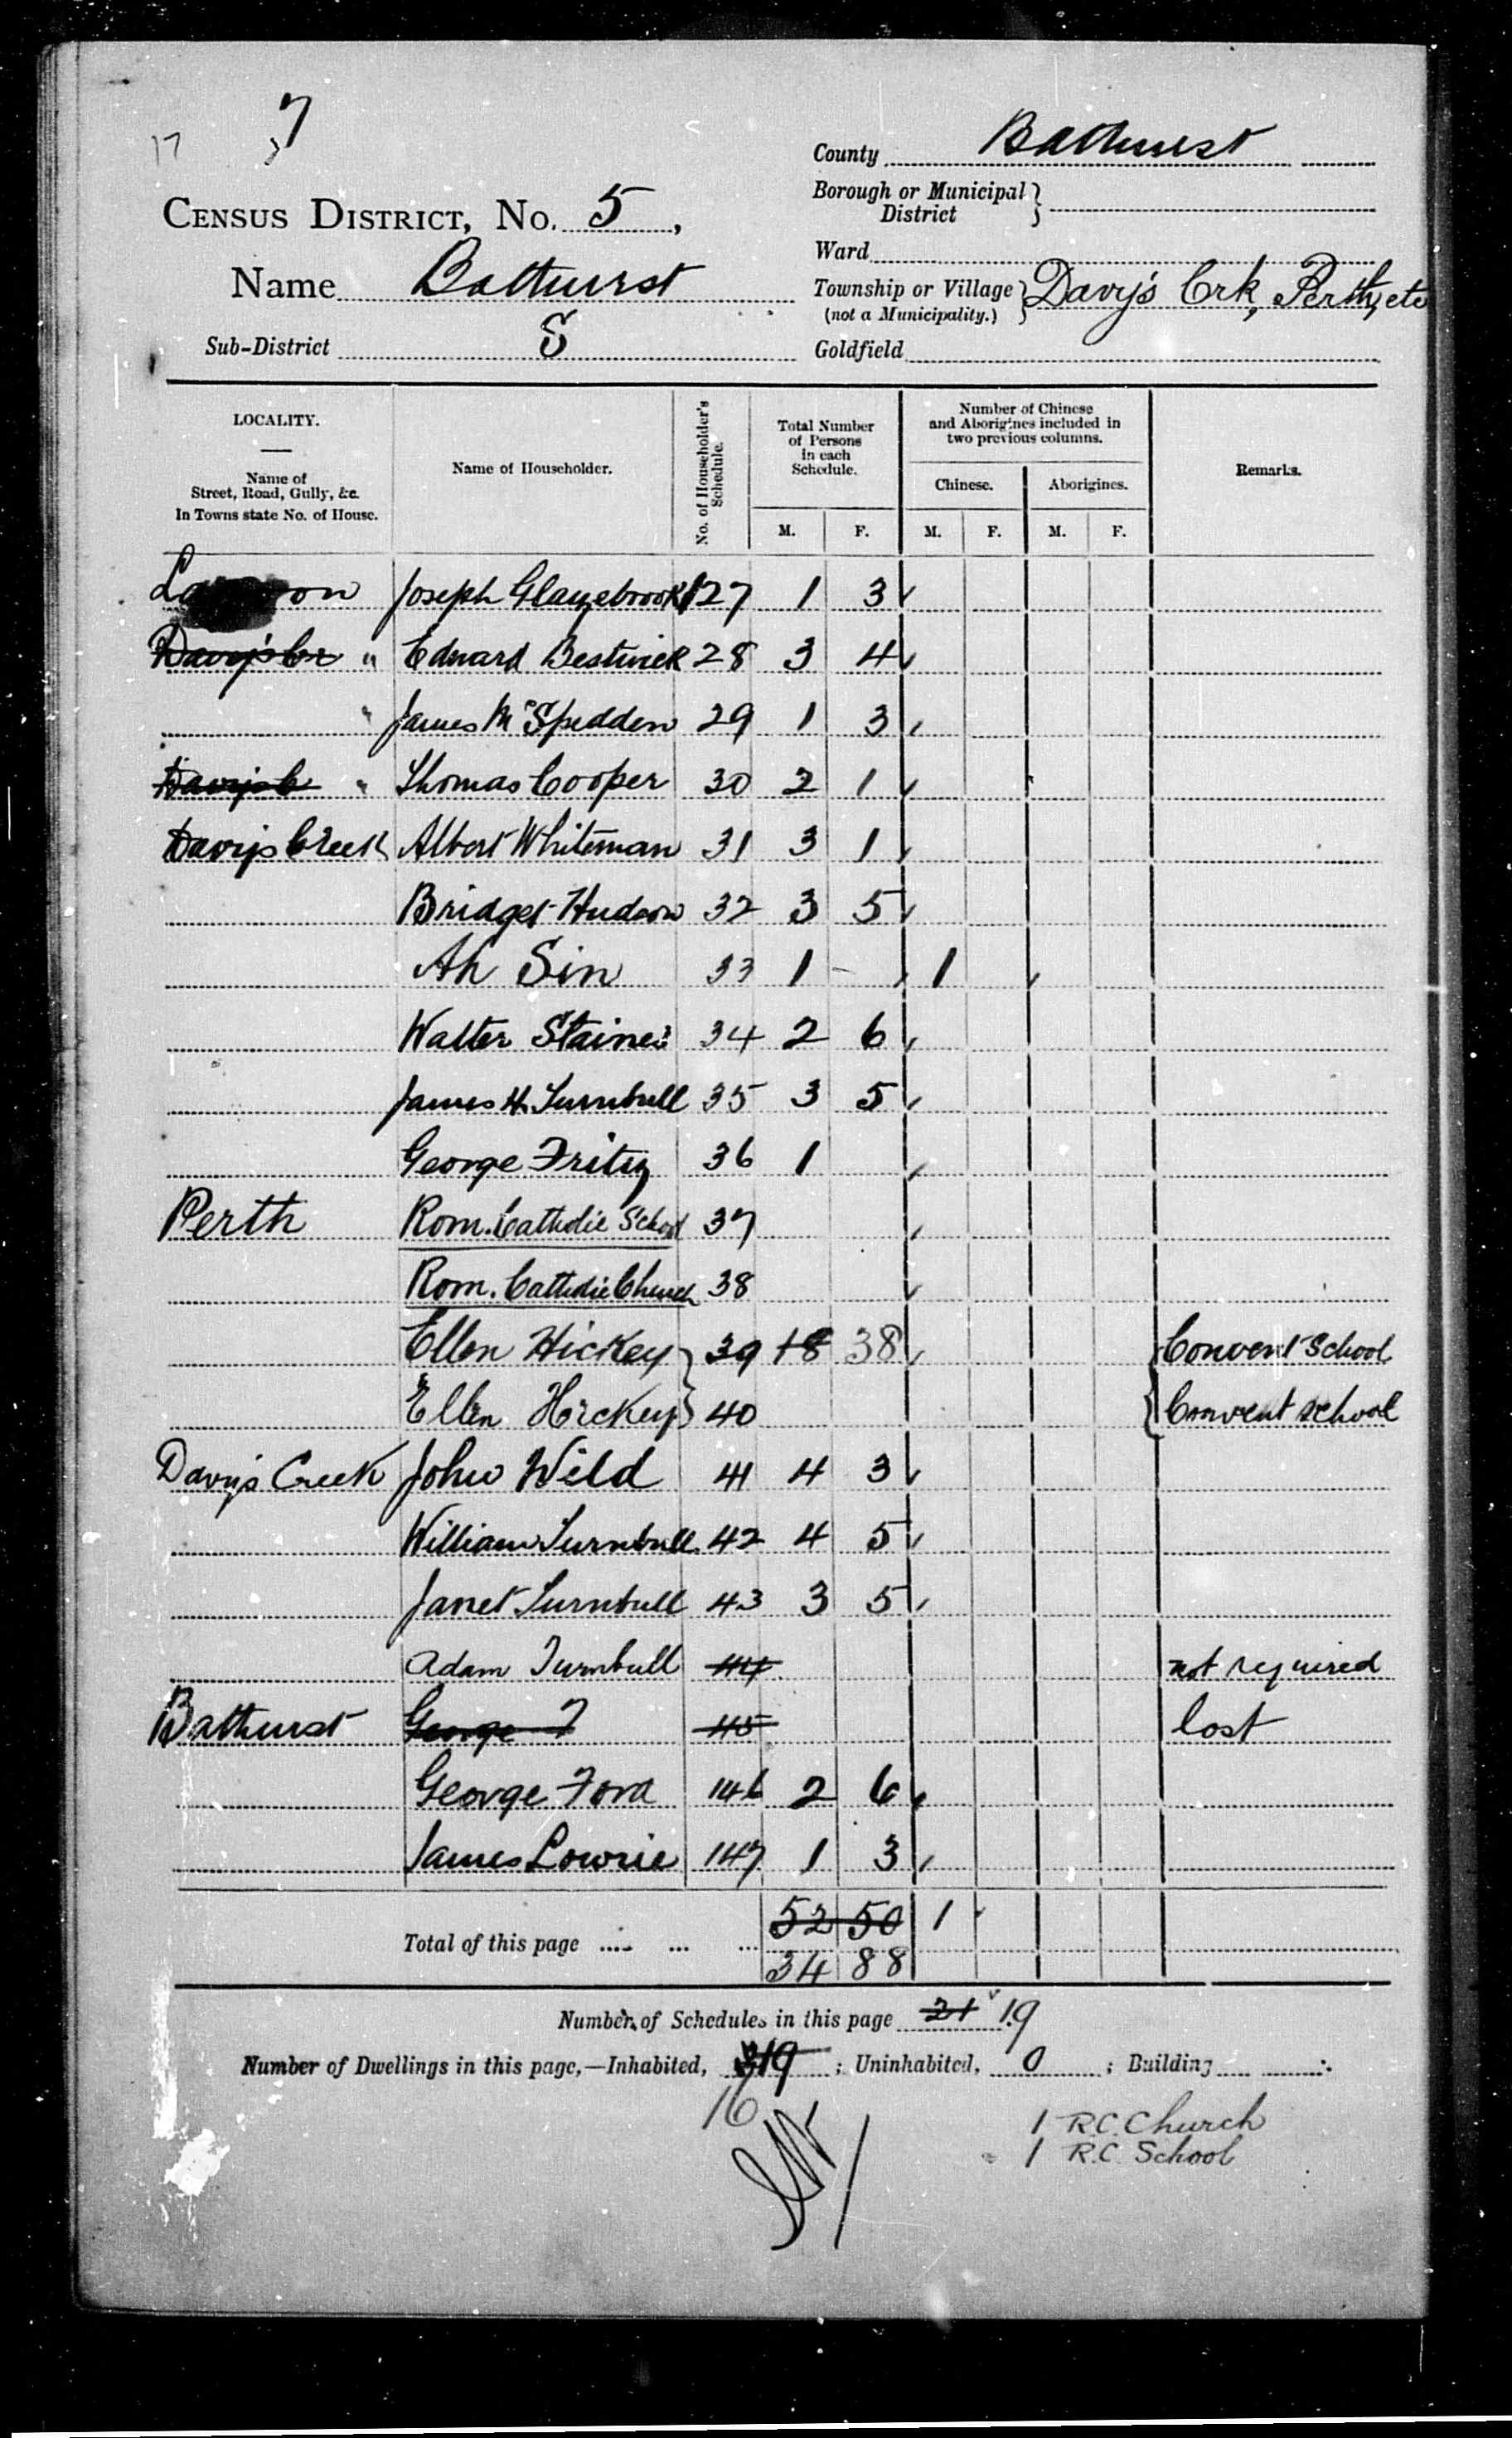 17 7
County Bathurst
Borough or Municipal District
CENSUS DISTRICT, No. 5,
Ward
Name Bathurst
Township or Village (not a Municipality.) Davy's Crk, Perth, etc
Sub-District S
Goldfield
LOCALITY.
Name of Street, Road, Gully, &c.
In Towns state No. of House.
Name of Householder.
No. of Householder's Schedule.
Total Number of Persons in each Schedule.
M. F.
Number of Chinese and Aborigines included in two previous columns.
Chinese. Aborigines.
M. F. M. F.
Remarks.
Joseph Glayzebrook 127 1 3
Davy's Cr " Edward Bestwick 28 3 4
" James McSpedden 29 1 3
Davys C " Thomas Cooper 30 2 1
Davys Creek Albert Whiteman 31 3 1
Bridget Hudson 32 3 5
Ah Sin 33 1 - 1
Walter Staines 34 2 6
James H. Turnbull 35 3 5
George Fritz 36 1
Perth Rom. Catholic School 37
Rom. Catholic Church 38
Ellen Hickey 39 18 38 Convent School
Ellen Hickey 40 Convent school
Davys Creek John Wild 41 4 3
William Turnbull 42 4 5
Janet Turnbull 43 3 5
Adam Turnbull 44 not required
Bathurst George 45 lost
George Ford 146 2 6
James Lowrie 147 1 3
52 50 1
Total of this page .... ... ...
34 88
Number of Schedules in this page 21 19
Number of Dwellings in this page,—Inhabited, 19; Uninhabited, 0; Building
16
1 R.C. Church
1 R.C. School